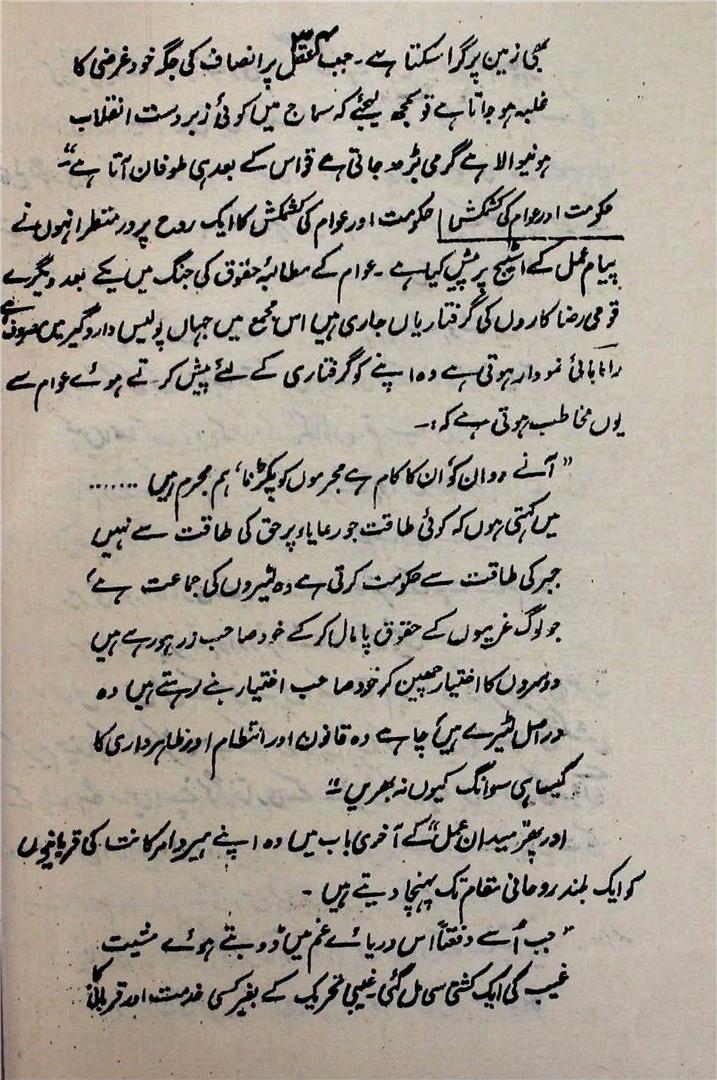 ۳۴
بھی زمین پر گرا سکتا ہے۔ جب عقل پر انصاف کی جگہ خود غرضی کا
غلبہ ہو جاتا ہے تو سمجھ لیجئے کہ سماج میں کوئی زبردست انقلاب
ہونیوالا ہے گرمی بڑھ جاتی ہے تو اس کے بعد ہی طوفان آتا ہے"۔
حکومت اور عوام کی کشمکش حکومت اور عوام کی کشمکش کا ایک روح پرور منظر انہوں نے
پیام عمل کے اسٹیج پر پیش کیا ہے۔ عوام کے مطالبۂ حقوق کی جنگ میں یکے بعد دیگرے
قومی رضا کاروں کی گرفتاریاں جاری ہیں اس مجمع میں جہاں پولیس دارو گیر میں مصروف ہے
رانا بائی نمودار ہوتی ہے وہ اپنے کو گرفتاری کے لئے پیش کرتے ہوئے عوام سے
یوں مخاطب ہوتی ہے کہ:۔
"آنے دو ان کو ان کا کام ہے مجرموں کو پکڑنا، ہم مجرم ہیں .......
میں کہتی ہوں کہ کوئی طاقت جو رعایاء پر حق کی طاقت سے نہیں
جبر کی طاقت سے حکومت کرتی ہے وہ لٹیروں کی جماعت ہے،
جو لوگ غریبوں کے حقوق پامال کر کے خود صاحب زر ہو رہے ہیں
دوسروں کا اختیار چھین کر خود صاحب اختیار بنے رہتے ہیں وہ
دراصل لٹیرے ہیں، چاہے وہ قانون اور انتظام اور ظاہر داری کا
کیسا ہی سوانگ کیوں نہ بھریں"۔
اور پھر "میدان عمل" کے آخری باب میں وہ اپنے ہیرو امرکانت کی قربانیوں
کو ایک بلند روحانی مقام تک پہنچا دیتے ہیں۔
"جب اُسے دفعتاً اس دریائے غم میں ڈوبتے ہوئے مشیت
غیب کی ایک کشتی سی مل گئی۔ غیبی تحریک کے بغیر کسی خدمت اور قربانی کا